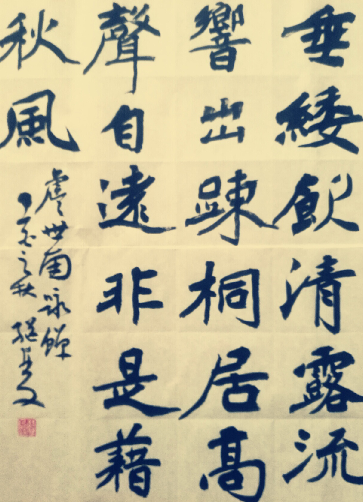 垂緌飲清露流
響出踈桐居高
聲自遠非是藉
秋風
虞世南咏蟬
之秋